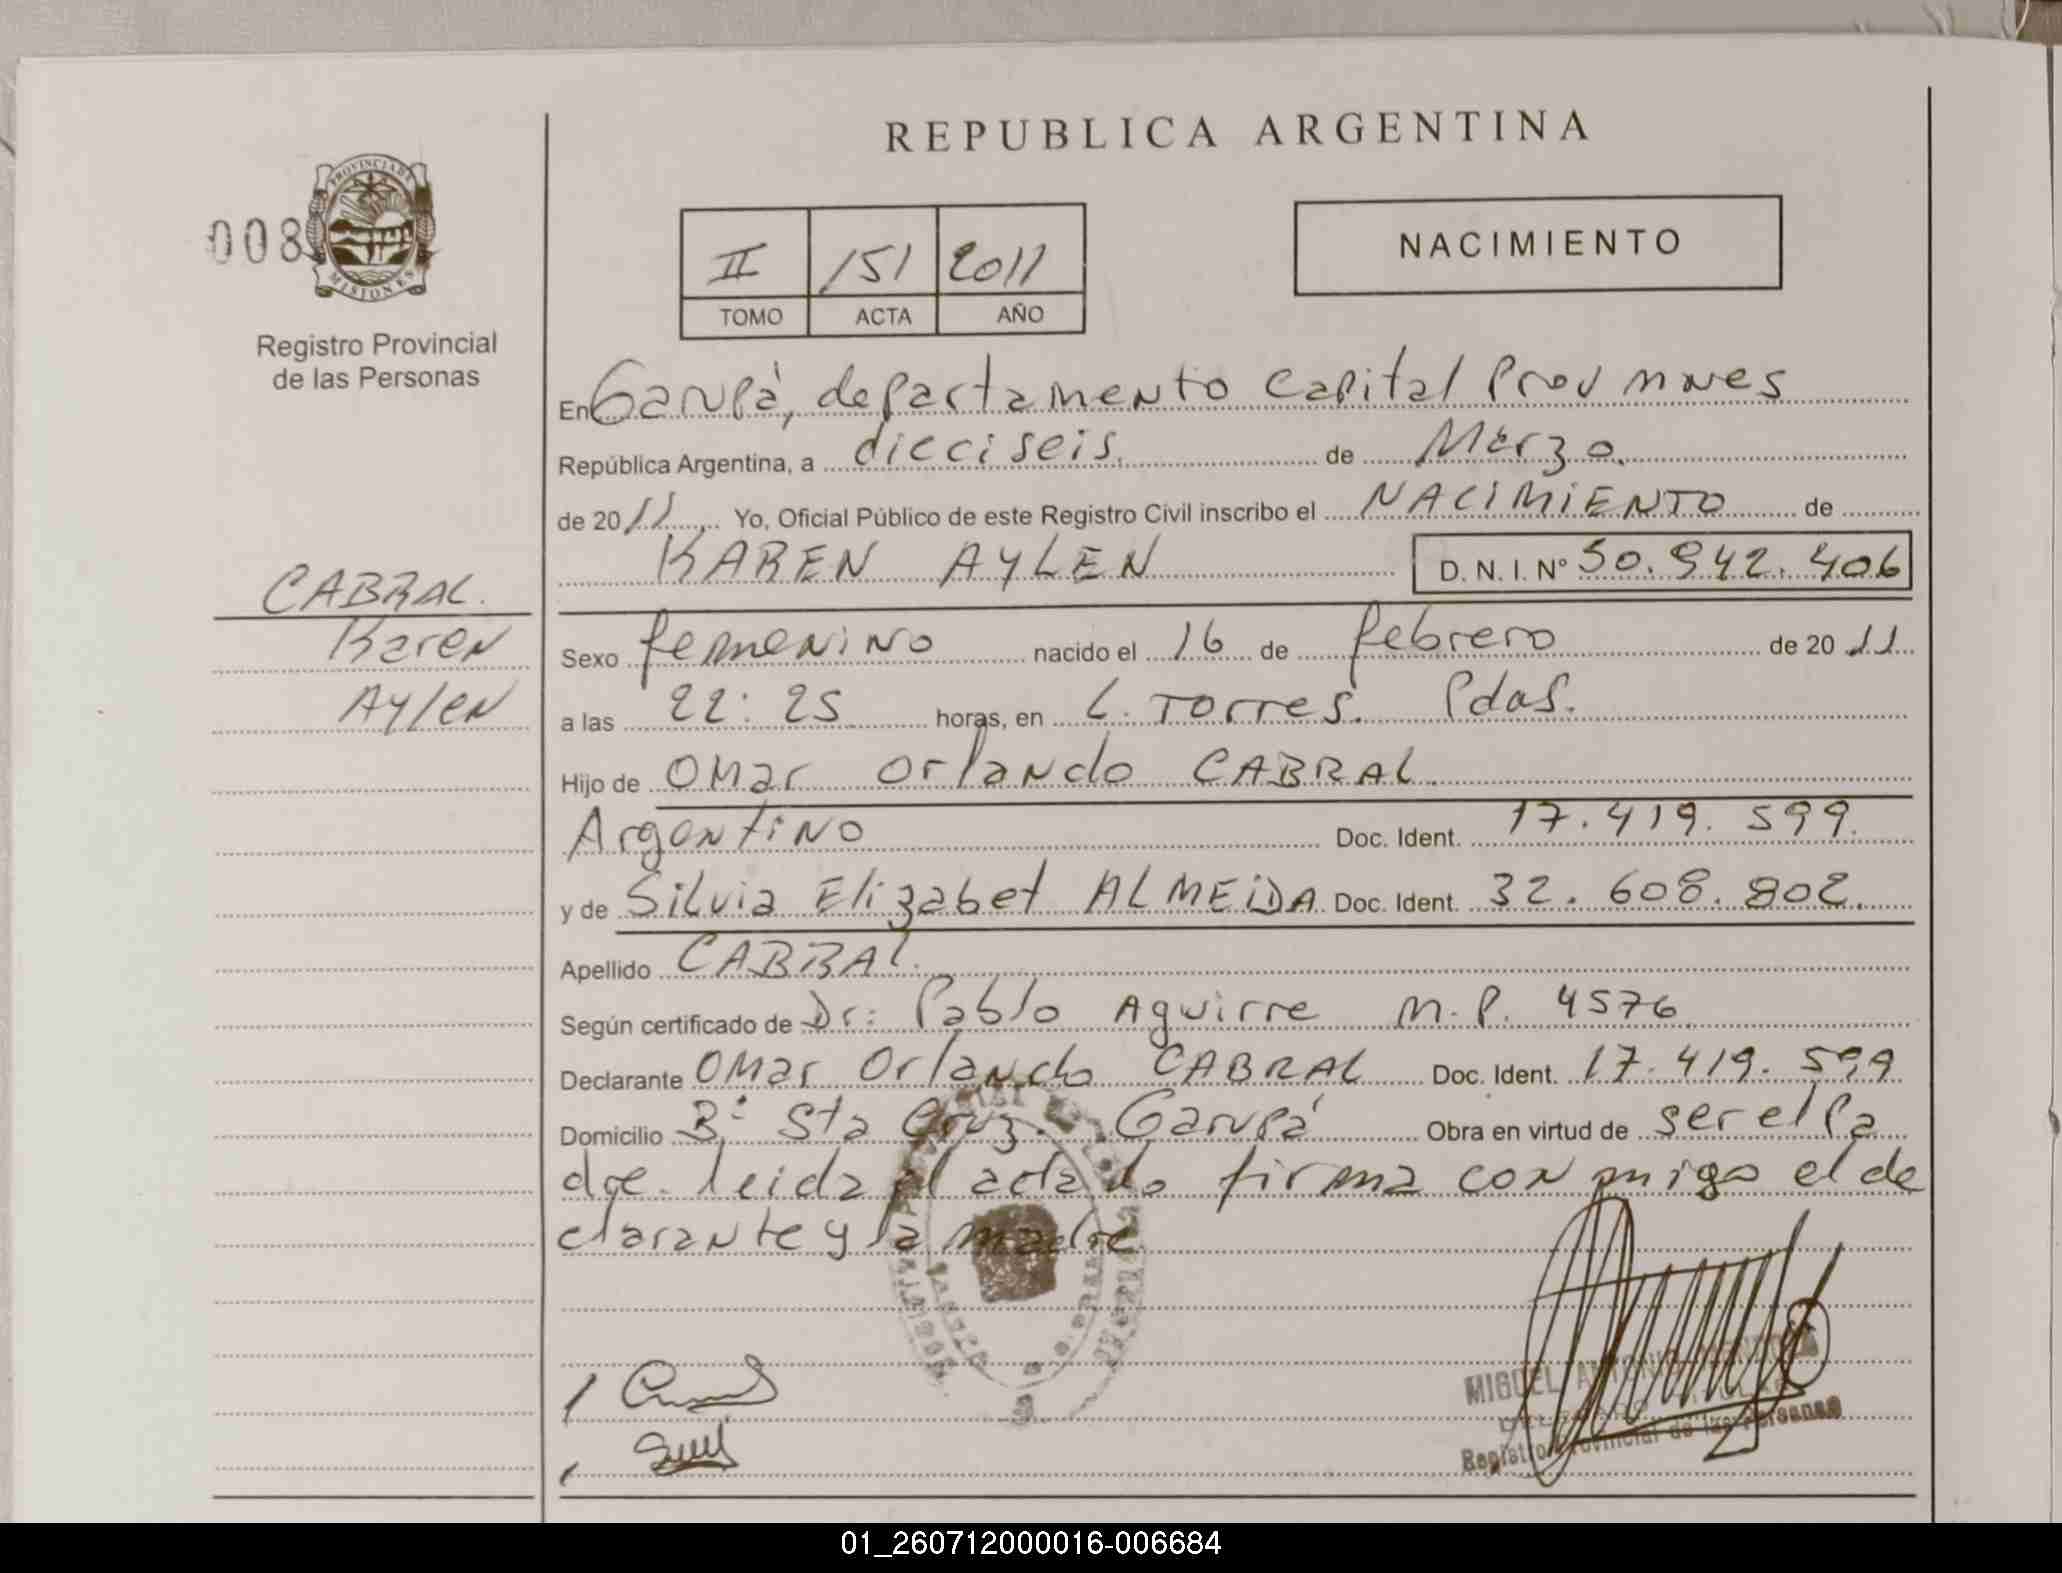 REPUBLICA ARGENTINA
008
PROVINCIA DE
MISIONES
Registro Provincial
de las Personas
II 151 2011
TOMO ACTA AÑO
NACIMIENTO
En Garupá, departamento Capital Prov mnes
República Argentina, a dieciseis. de Marzo.
de 2011 Yo, Oficial Público de este Registro Civil inscribo el NACIMIENTO de
KAREN AYLEN D. N. I. Nº 50.942.406
CABRAL.
Karen
Aylen
Sexo femenino nacido el 16 de febrero de 2011
a las 22:25 horas, en L. Torres. Pdas.
Hijo de Omar Orlando CABRAL.
Argentino Doc. Ident. 17.419.599.
y de Silvia Elizabet ALMEIDA Doc. Ident. 32.608.802.
Apellido CABRAL.
Según certificado de Dr: Pablo Aguirre M.P. 4576.
Declarante Omar Orlando CABRAL Doc. Ident. 17.419.599
Domicilio Bº Sta Cruz. Garupá Obra en virtud de ser el Pa
dre. leida el acta la firma conmigo el de
clarante y la madre.
MIGUEL ANTONIO
TITULAR
Registro Provincial de las Personas
01_260712000016-006684